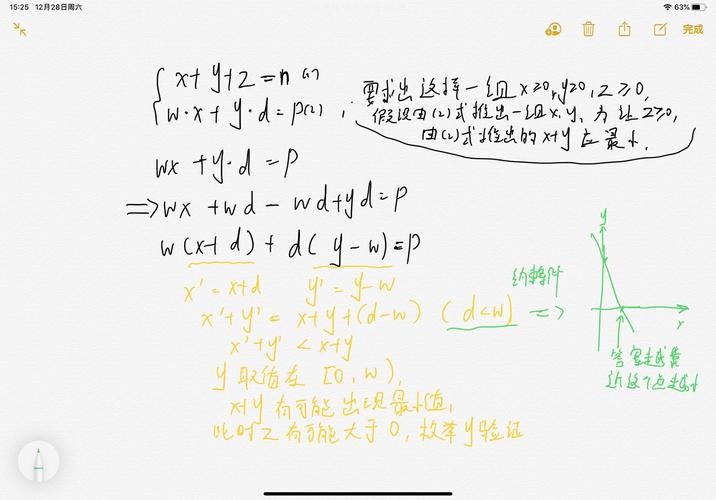 15:25 12月28日周六
63%
完成
x+y+z=n (1)
w·x+y·d=p(2)
要求出这样一组 x≥0, y≥0, z≥0,
假设由(2)式推出一组x,y, 为让z≥0,
由(2)式推出的x+y应最小.
wx+y·d=p
⇒wx+wd-wd+yd=p
w(x+d)+d(y-w)=p
x'=x+d y'=y-w
x'+y'=x+y+(d-w) (d<w) ⇒
x'+y'<x+y
y取值在[0,w),
x+y有可能出现最小值,
此时z有可能大于0,枚举y验证
约束条件
y
x
答案越靠
近这个点越小